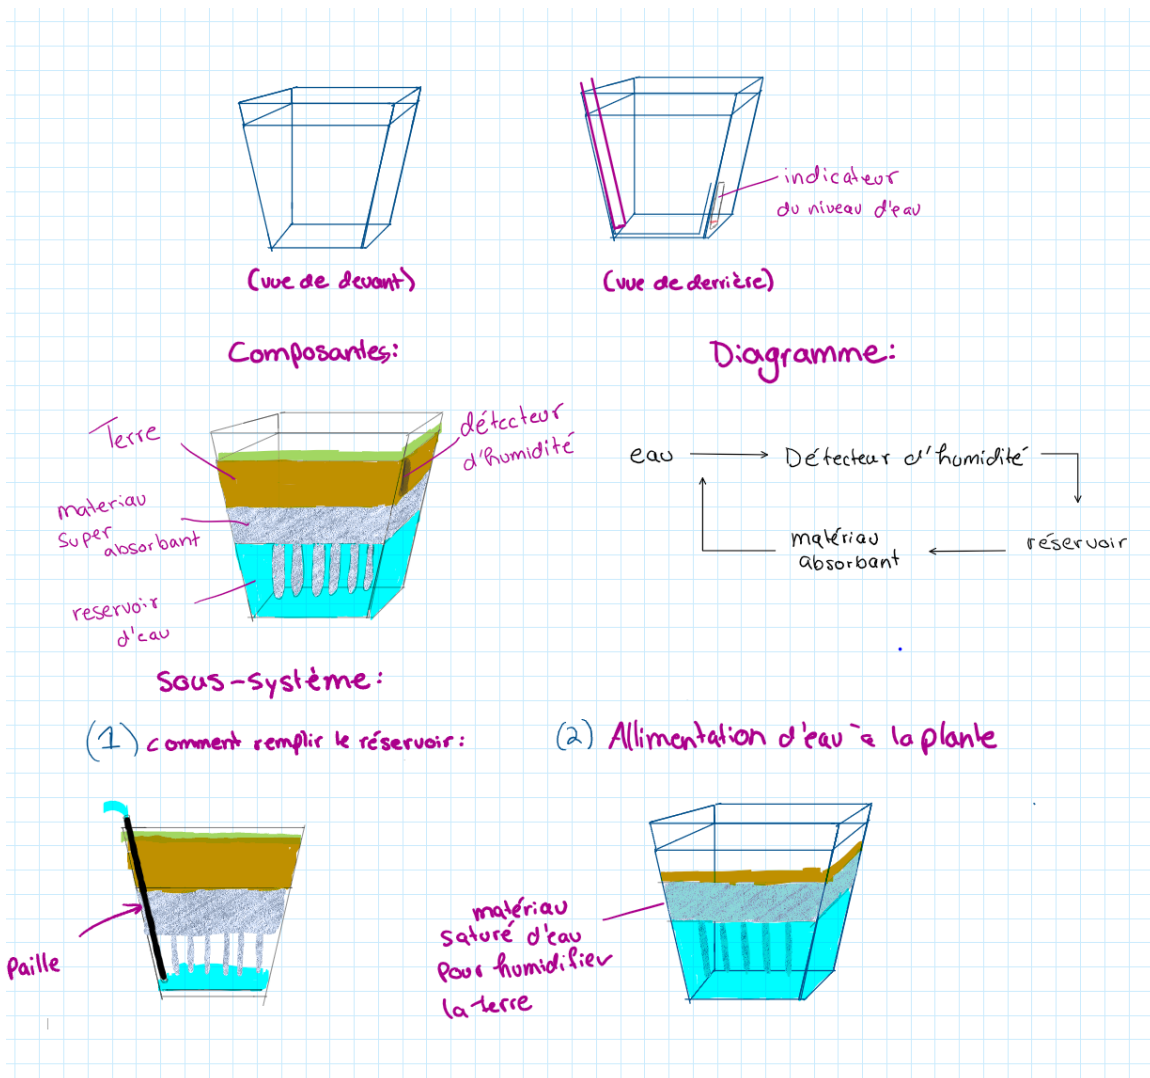 indicateur
du niveau d'eau
(vue de devant)
(vue de derrière)
Composantes:
Diagramme:
Terre
détecteur
d'humidité
materiau
super
absorbant
reservoir
d'eau
eau
Détecteur d'humidité
matériau
absorbant
réservoir
Sous-système:
(1) comment remplir le réservoir:
(2) Allimentation d'eau à la plante
Paille
matériau
saturé d'eau
pour humidifier
la terre